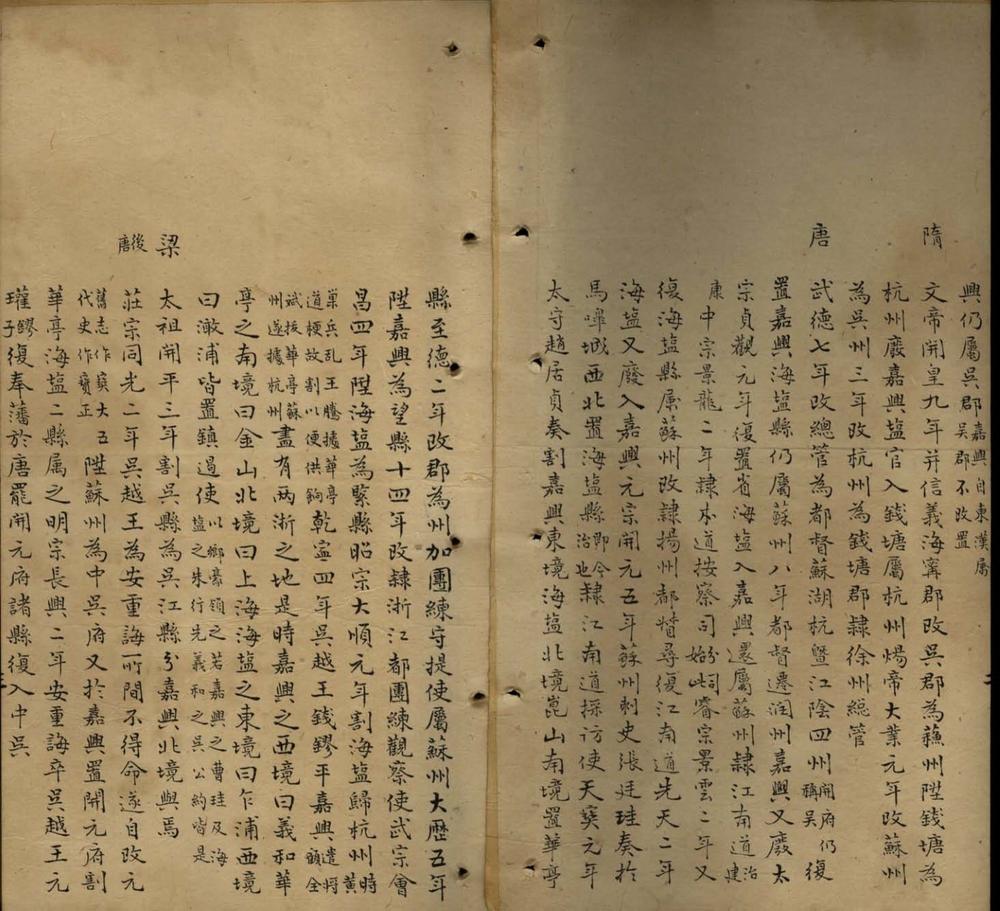 興仍屬吳郡嘉興自東漢屬吳郡不改置
隋
文帝開皇九年并信義海寗郡改吳郡為蘓州陞錢塘為
杭州廢嘉興塩官入錢塘屬杭州煬帝大業元年改蘇州
為吳州三年改杭州為錢塘郡隸徐州緫管
唐
武德七年改總管為都督蘇湖杭暨江陰四州開府仍稱吳復
置嘉興海塩縣仍屬蘇州八年都督遷润州嘉興又廢太
宗貞觀元年復置省海塩入嘉興還屬蘇州隸江南道治建
康中宗景龍二年隸本道按察司始此睿宗景雲二年又
復海塩縣屬蘇州改隸揚州都督尋復江南道先天二年
海塩又廢入嘉興元宗開元五年蘇州刺史張廷珪奏於
馬嘷城西北置海塩縣即今治也隸江南道採訪使天寳元年
太守趙居貞奏割嘉興東境海塩北境崑山南境置華亭
縣至德二年改郡為州加團練守提使屬蘇州大歷五年
陞嘉興為望縣十四年改隸浙江都團練觀察使武宗會
昌四年陞海塩為緊縣昭宗大順元年割海塩歸杭州時黄
巢兵乱王騰據華亭道梗故割以便供餉乾寍四年吳越王錢鏐平嘉興遣将顧全
斌拔華亭蘇州遂據杭州盡有两浙之地是時嘉興之西境曰義和華
亭之南境曰金山北境曰上海海塩之東境曰乍浦西境
曰澉浦皆置鎮遏使以鄉豪領之若嘉興之曹珪及海塩之朱行先義和之吳公約皆是
梁
太祖開平三年割吳縣為吳江縣分嘉興北境與焉
後唐
莊宗同光二年吳越王為安重誨所間不得命遂自改元
舊志作寳大五代史作寳正陞蘇州為中吳府又於嘉興置開元府割
華亭海塩二縣属之明宗長興二年安重誨卒吳越王元
瓘鏐子復奉藩於唐罷開元府諸縣復入中吳